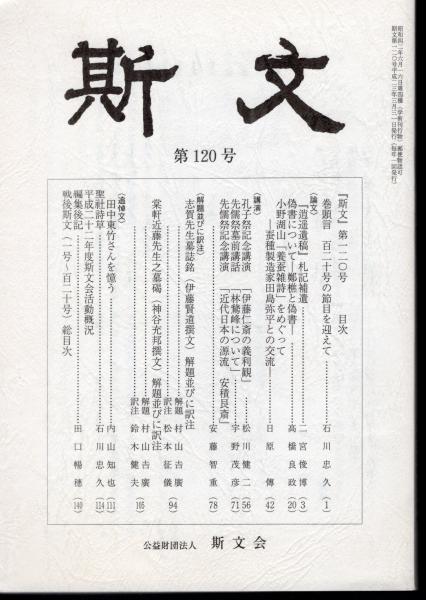 昭和四二年六月一六日第四種(学術刊行物)郵便物認可
斯文第一二〇号平成二三年三月三一日発行(毎年一回発行)
斯文
第120号
『斯文』第一二〇号 目次
巻頭言 百二十号の節目を迎えて 石川忠久 (1)
〈論文〉
『逍遥遺稿』札記補遺 二宮俊博 (3)
偽書について―鄭樵と偽書― 高橋良政 (20)
小野湖山「養蚕雑詩」をめぐって
―蚕種製造家田島弥平との交流― 日原傳 (42)
〈講演〉
孔子祭記念講演 「伊藤仁斎の義利観」 松川健二 (56)
先儒祭墓前講話 「林鵞峰について」 宇野茂彦 (71)
先儒祭記念講演 「近代日本の源流 安積艮斎」 安藤智重 (78)
〈解題並びに訳注〉
志賀先生墓誌銘(伊藤賢道撰文)解題並びに訳注
解題 村山吉廣
訳注 松本征儀 (94)
棠軒近藤先生之墓碣(神谷允邦撰文)解題並びに訳注
解題 村山吉廣
訳注 鈴木健夫 (105)
〈追悼文〉
田中東竹さんを憶う 内山知也 (111)
聖社詩草 石川忠久 (114)
平成二十二年度斯文会活動概況
編集後記 田口暢穂 (140)
戦後斯文(一号~百二十号)総目次
公益財団法人 斯文会